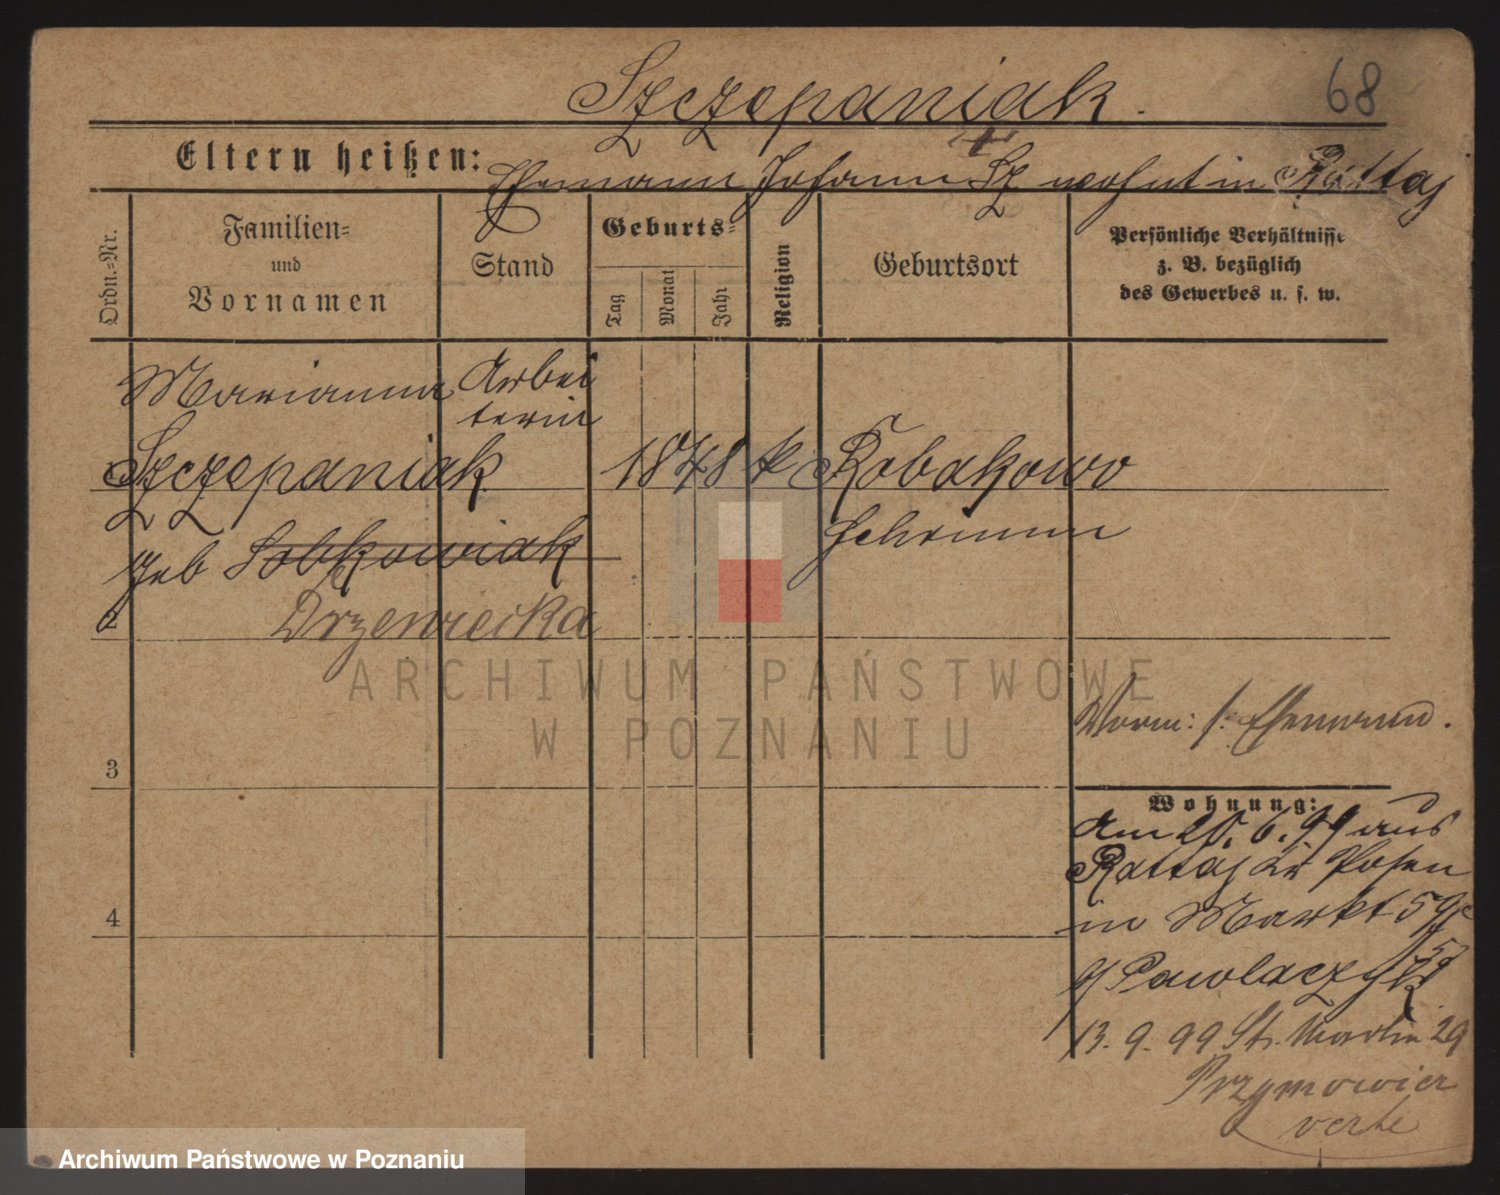 Szczepaniak.
68
Eltern heißen: Ehemann Johann Sz wohnt in Rattaj
Ordn.=Nr.
Familien=
und
Vornamen
Stand
Geburts=
Tag
Monat
Jahr
Religion
Geburtsort
Persönliche Verhältnisse
z. B. bezüglich
des Gewerbes u. s. w.
Marianna Arbei
terin
Szczepaniak 1848 k Robakowo
Schrimm
Geb Sobkowiak
2
Drzewiecka
Vorm: s: Ehemann.
3
Wohnung:
Am 20. 6. 99 aus
Rattaj Kr Posen
in Markt 59
b/ Pawlaczyk
4
13. 9. 99 St. Martin 29
verte
ARCHIWUM PAŃSTWOWE
W POZNANIU
Archiwum Państwowe w Poznaniu